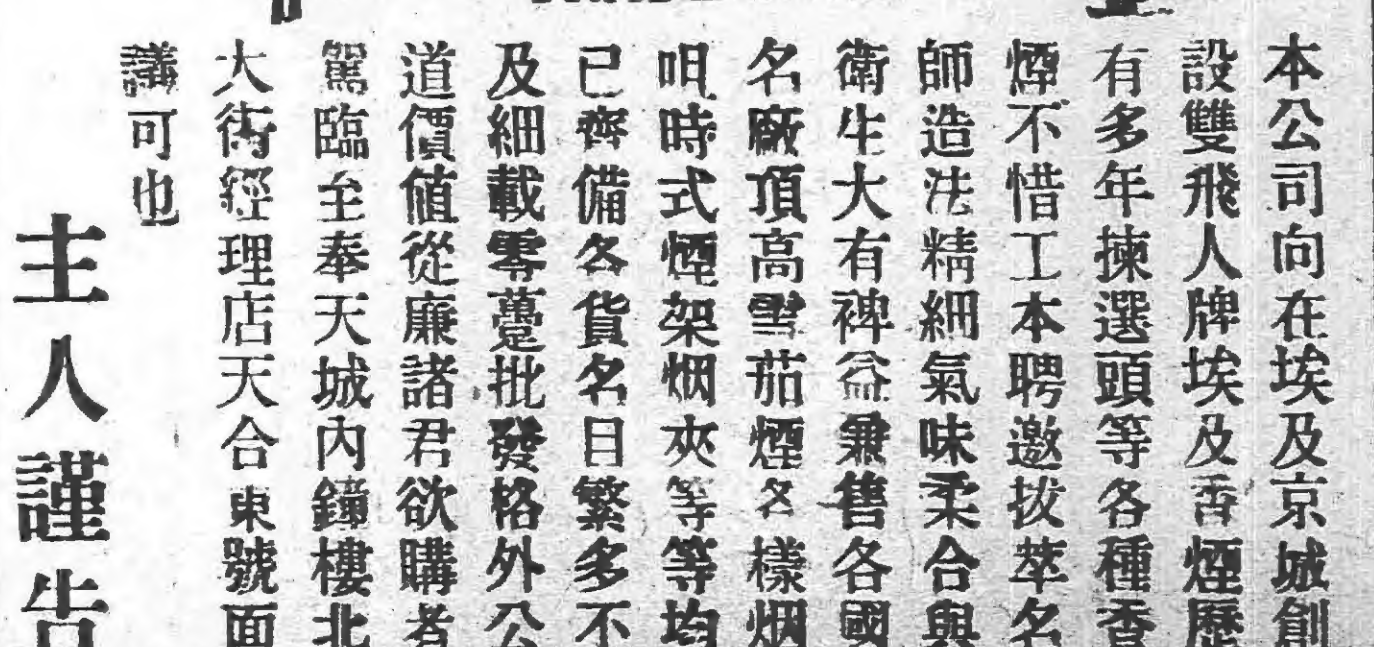 本公司向在埃及京城創
設雙飛人牌埃及香煙歷
有多年揀選頭等各種香
煙不惜工本聘邀拔萃名
師造法精細氣味柔合與
衛生大有裨益兼售各國
名廠頂高雪茄煙各樣烟
咀時式煙架烟夾等等均
已齊備各貨名目繁多不
及細載零躉批發格外公
道價値從廉諸君欲購者
駕臨至奉天城內鐘樓北
大街經理店天合東號面
議可也
主人謹告